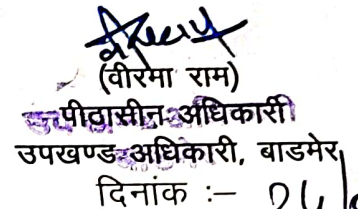 (वीरमा राम)
पीठासीन अधिकारी
उपखण्ड अधिकारी, बाडमेर
दिनांक :–